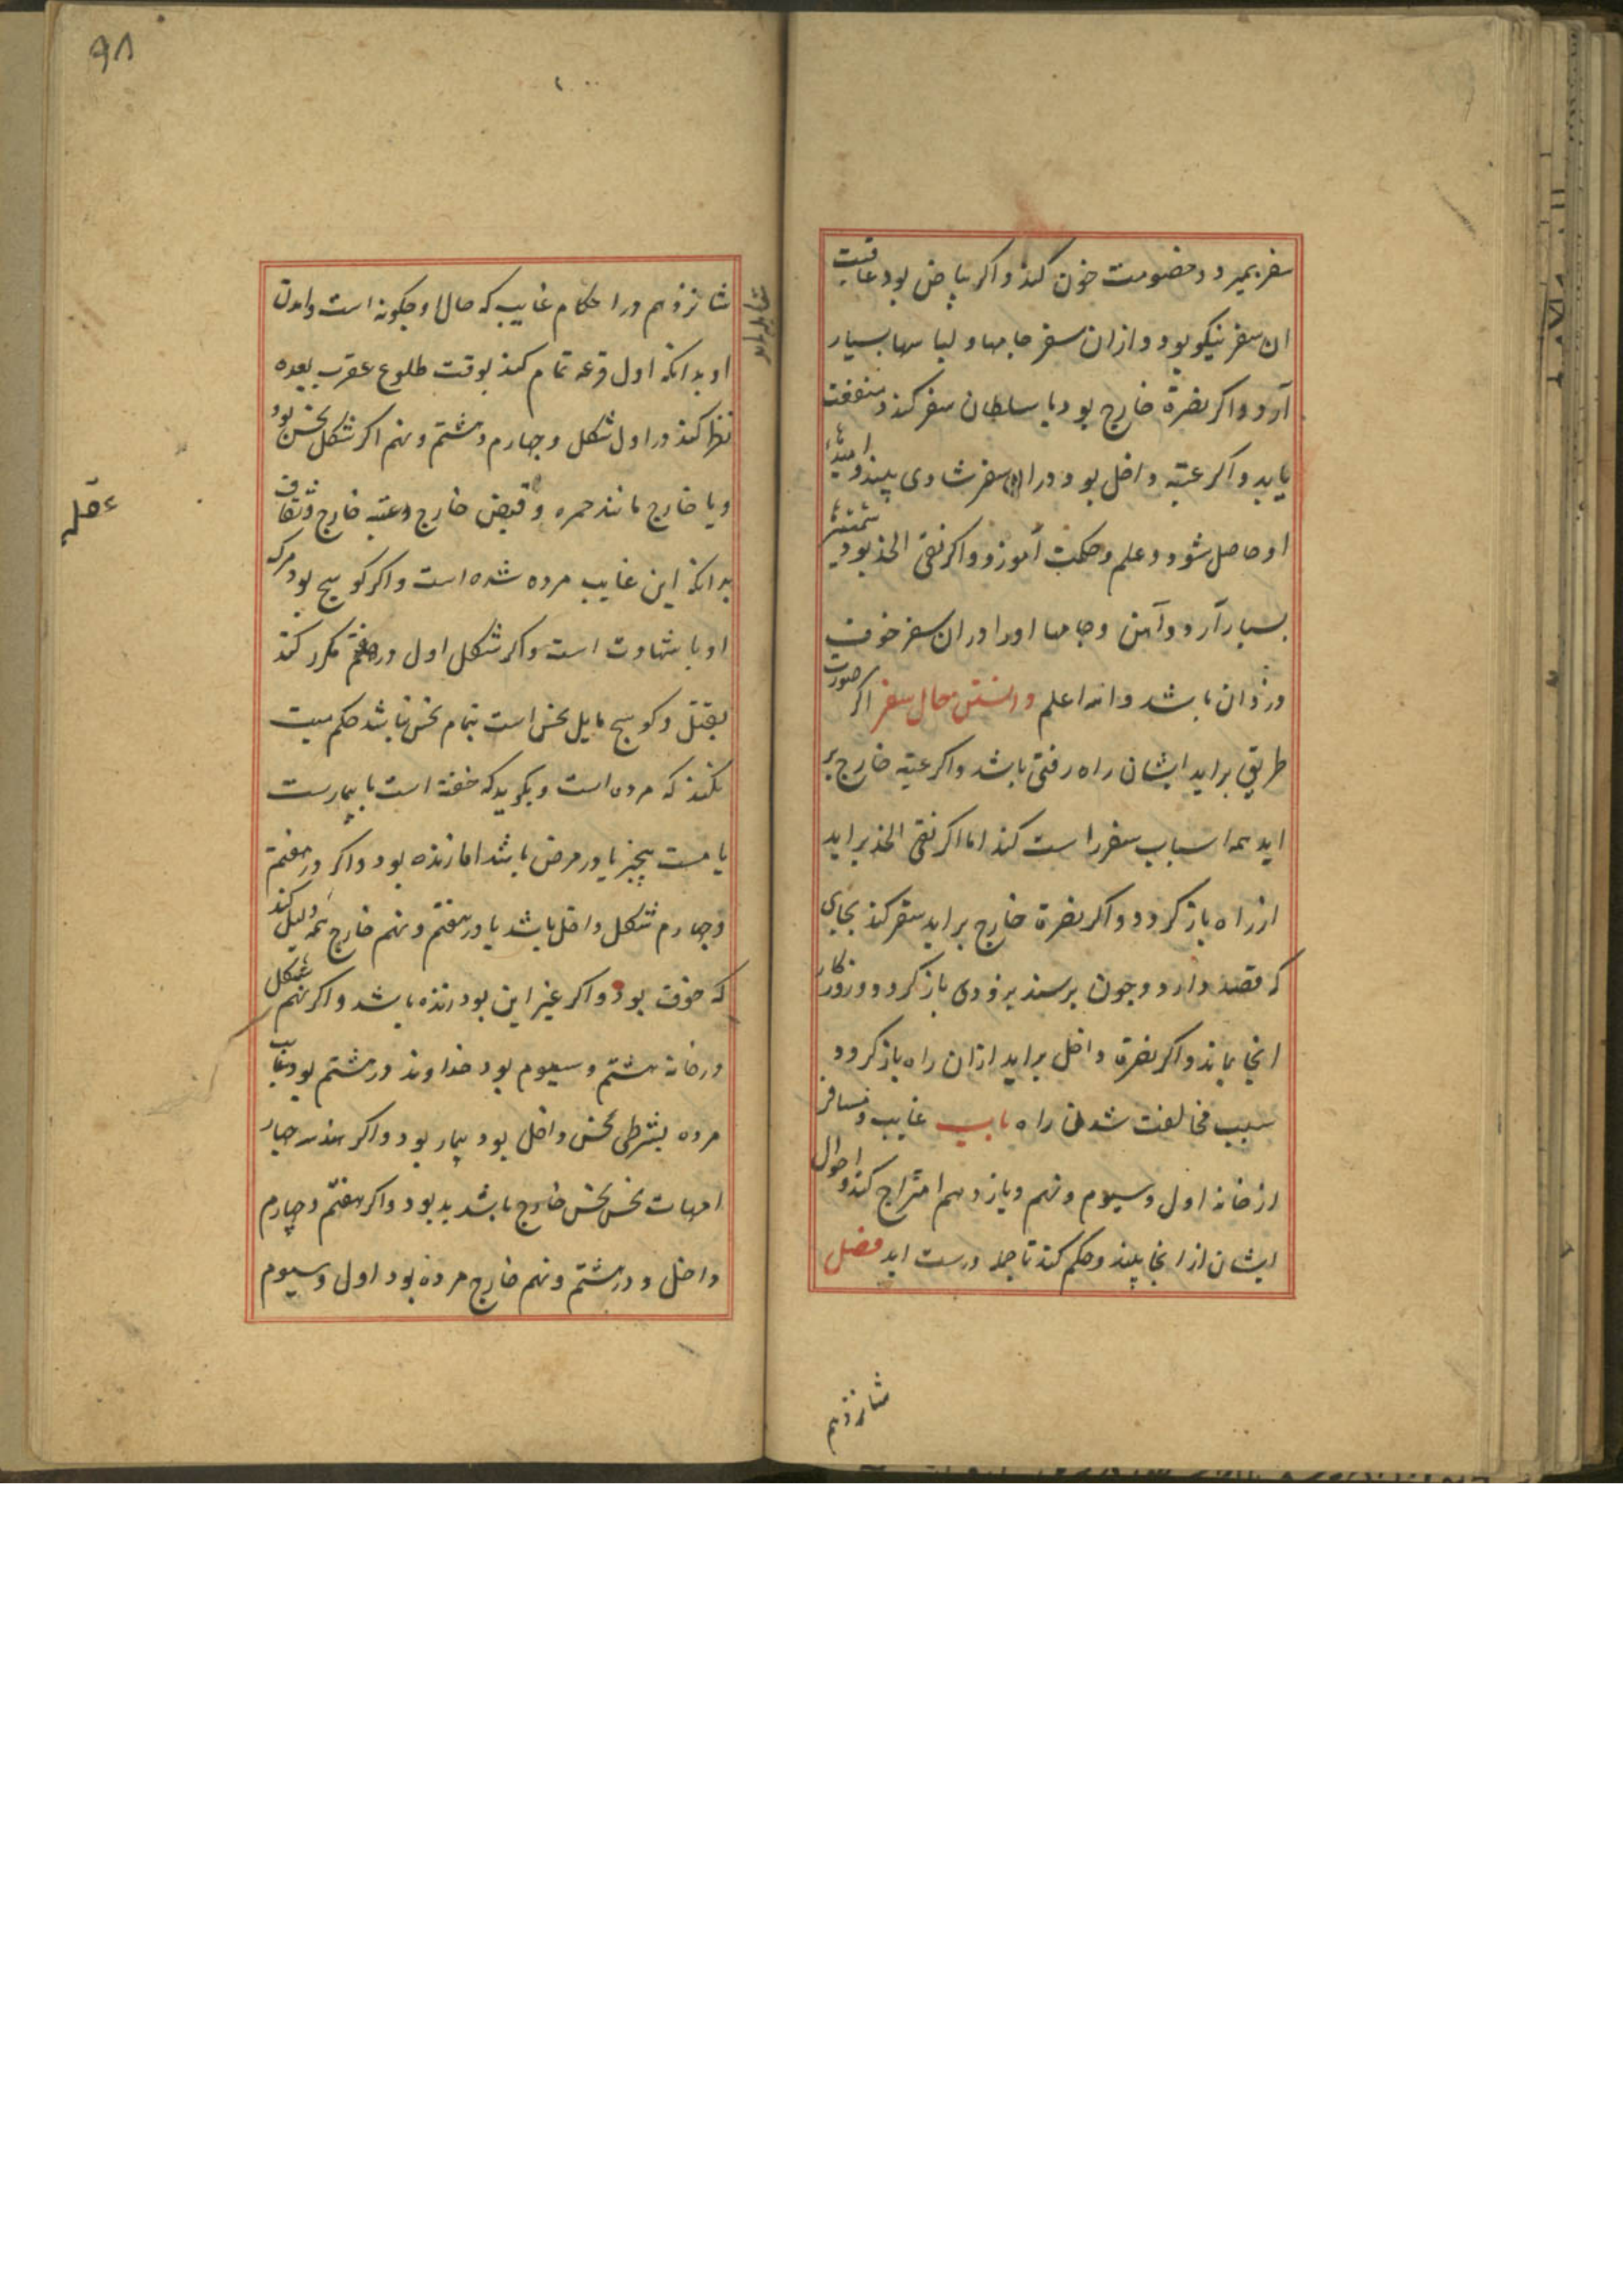 سفر بمیرد و خصومت خون کند و اکر بیاض بود عاقبت
ان سفر نیکو بود و ازان سفر جامها و لباسها بسیار
آرد و اکر نصرة خارج بود با سلطان سفر کند و منفعت
یابد و اکر عتبه داخل بود دران سفر شادی بیند و امیدها
او حاصل شود و علم و حکمت آموزد و اکر نقی الخد بود شمشیرها
بسیار آرد و آهن و جامها او را دران سفر خوف
دزدان باشد والله اعلم دانستن حال سفر اکر صورت
طریق براید ایشان راه رفتی باشد و اکر عتبه خارج بر
اید همه اسباب سفر راست کند اما اکر نقی الخد براید
از راه باز کردد و اکر نصرة خارج براید سفر کند بجای
که قصد دارد و چون برسد بزودی باز کردد و روزکار
انجا بماند و اکر نصرة داخل براید ازان راه باز کردد
سبب مخالفت شدن راه باب غایب و مسافر
از خانه اول و سیوم و نهم و یازدهم امتزاج کند و احوال
ایشان از انجا بیند و حکم کند تا جمله درست اید فصل
شانزدهم
۹۸
شانزدهم در احکام غایب که حال او چکونه است و امدن
او بدانکه اول قرعه تمام کند بوقت طلوع عقرب بعده
نظر کند در اول شکل و چهارم و هشتم و نهم اکر شکل نحس بود
و یا خارج مانند حمره و قبض خارج و عتبه خارج و ثقاف
بدانکه این غایب مرده شده است و اکر کوسج بود مرک
او با شهادت است و اکر شکل اول در هفتم مکرر کند
بقتل و کوسج مایل نحس است تمام نحس نباشد حکم میت
نکند که مرده است و بکوید که خفته است یا بیمارست
یا مست بیخبر یا در مرض باشد اما زنده بود و اکر در هفتم
و چهارم شکل داخل باشد یا در هفتم و نهم خارج همه دلیل کند
که خوف بود و اکر غیر این بود زنده باشد و اکر نهم شکل
در خانه هشتم و سیوم بود خداوند در هشتم بود غایب
مرده بشرطی نحس داخل بود بیمار بود و اکر چهار
امهات نحس نحس خارج باشد بد بود و اکر هفتم و چهارم
داخل و در هشتم و نهم خارج مرده بود اول و سیوم